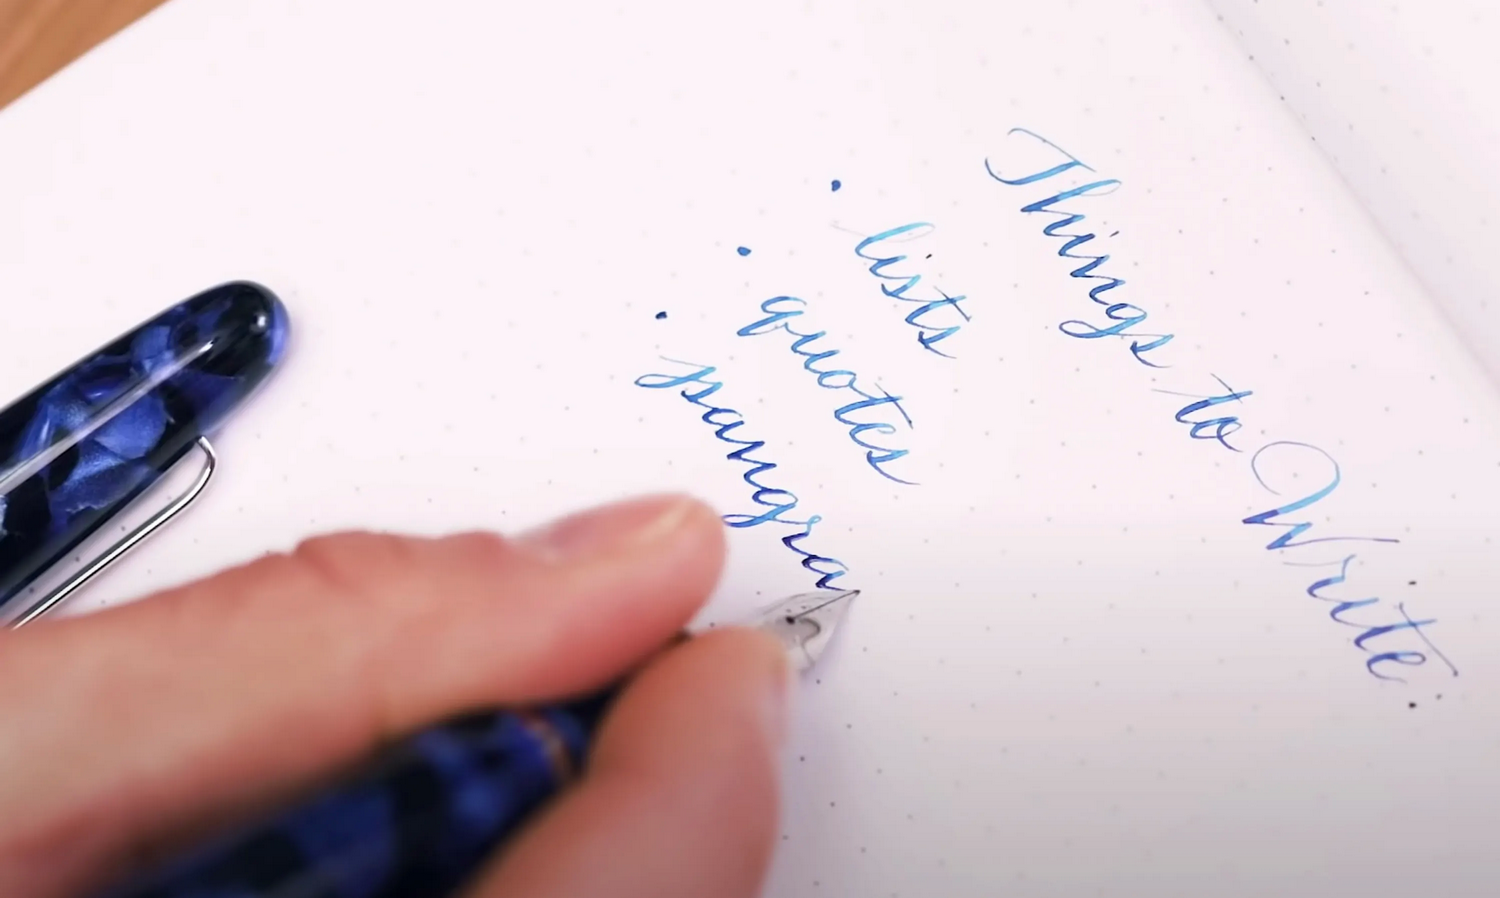 Things to Write:
• lists
• quotes
• pangra